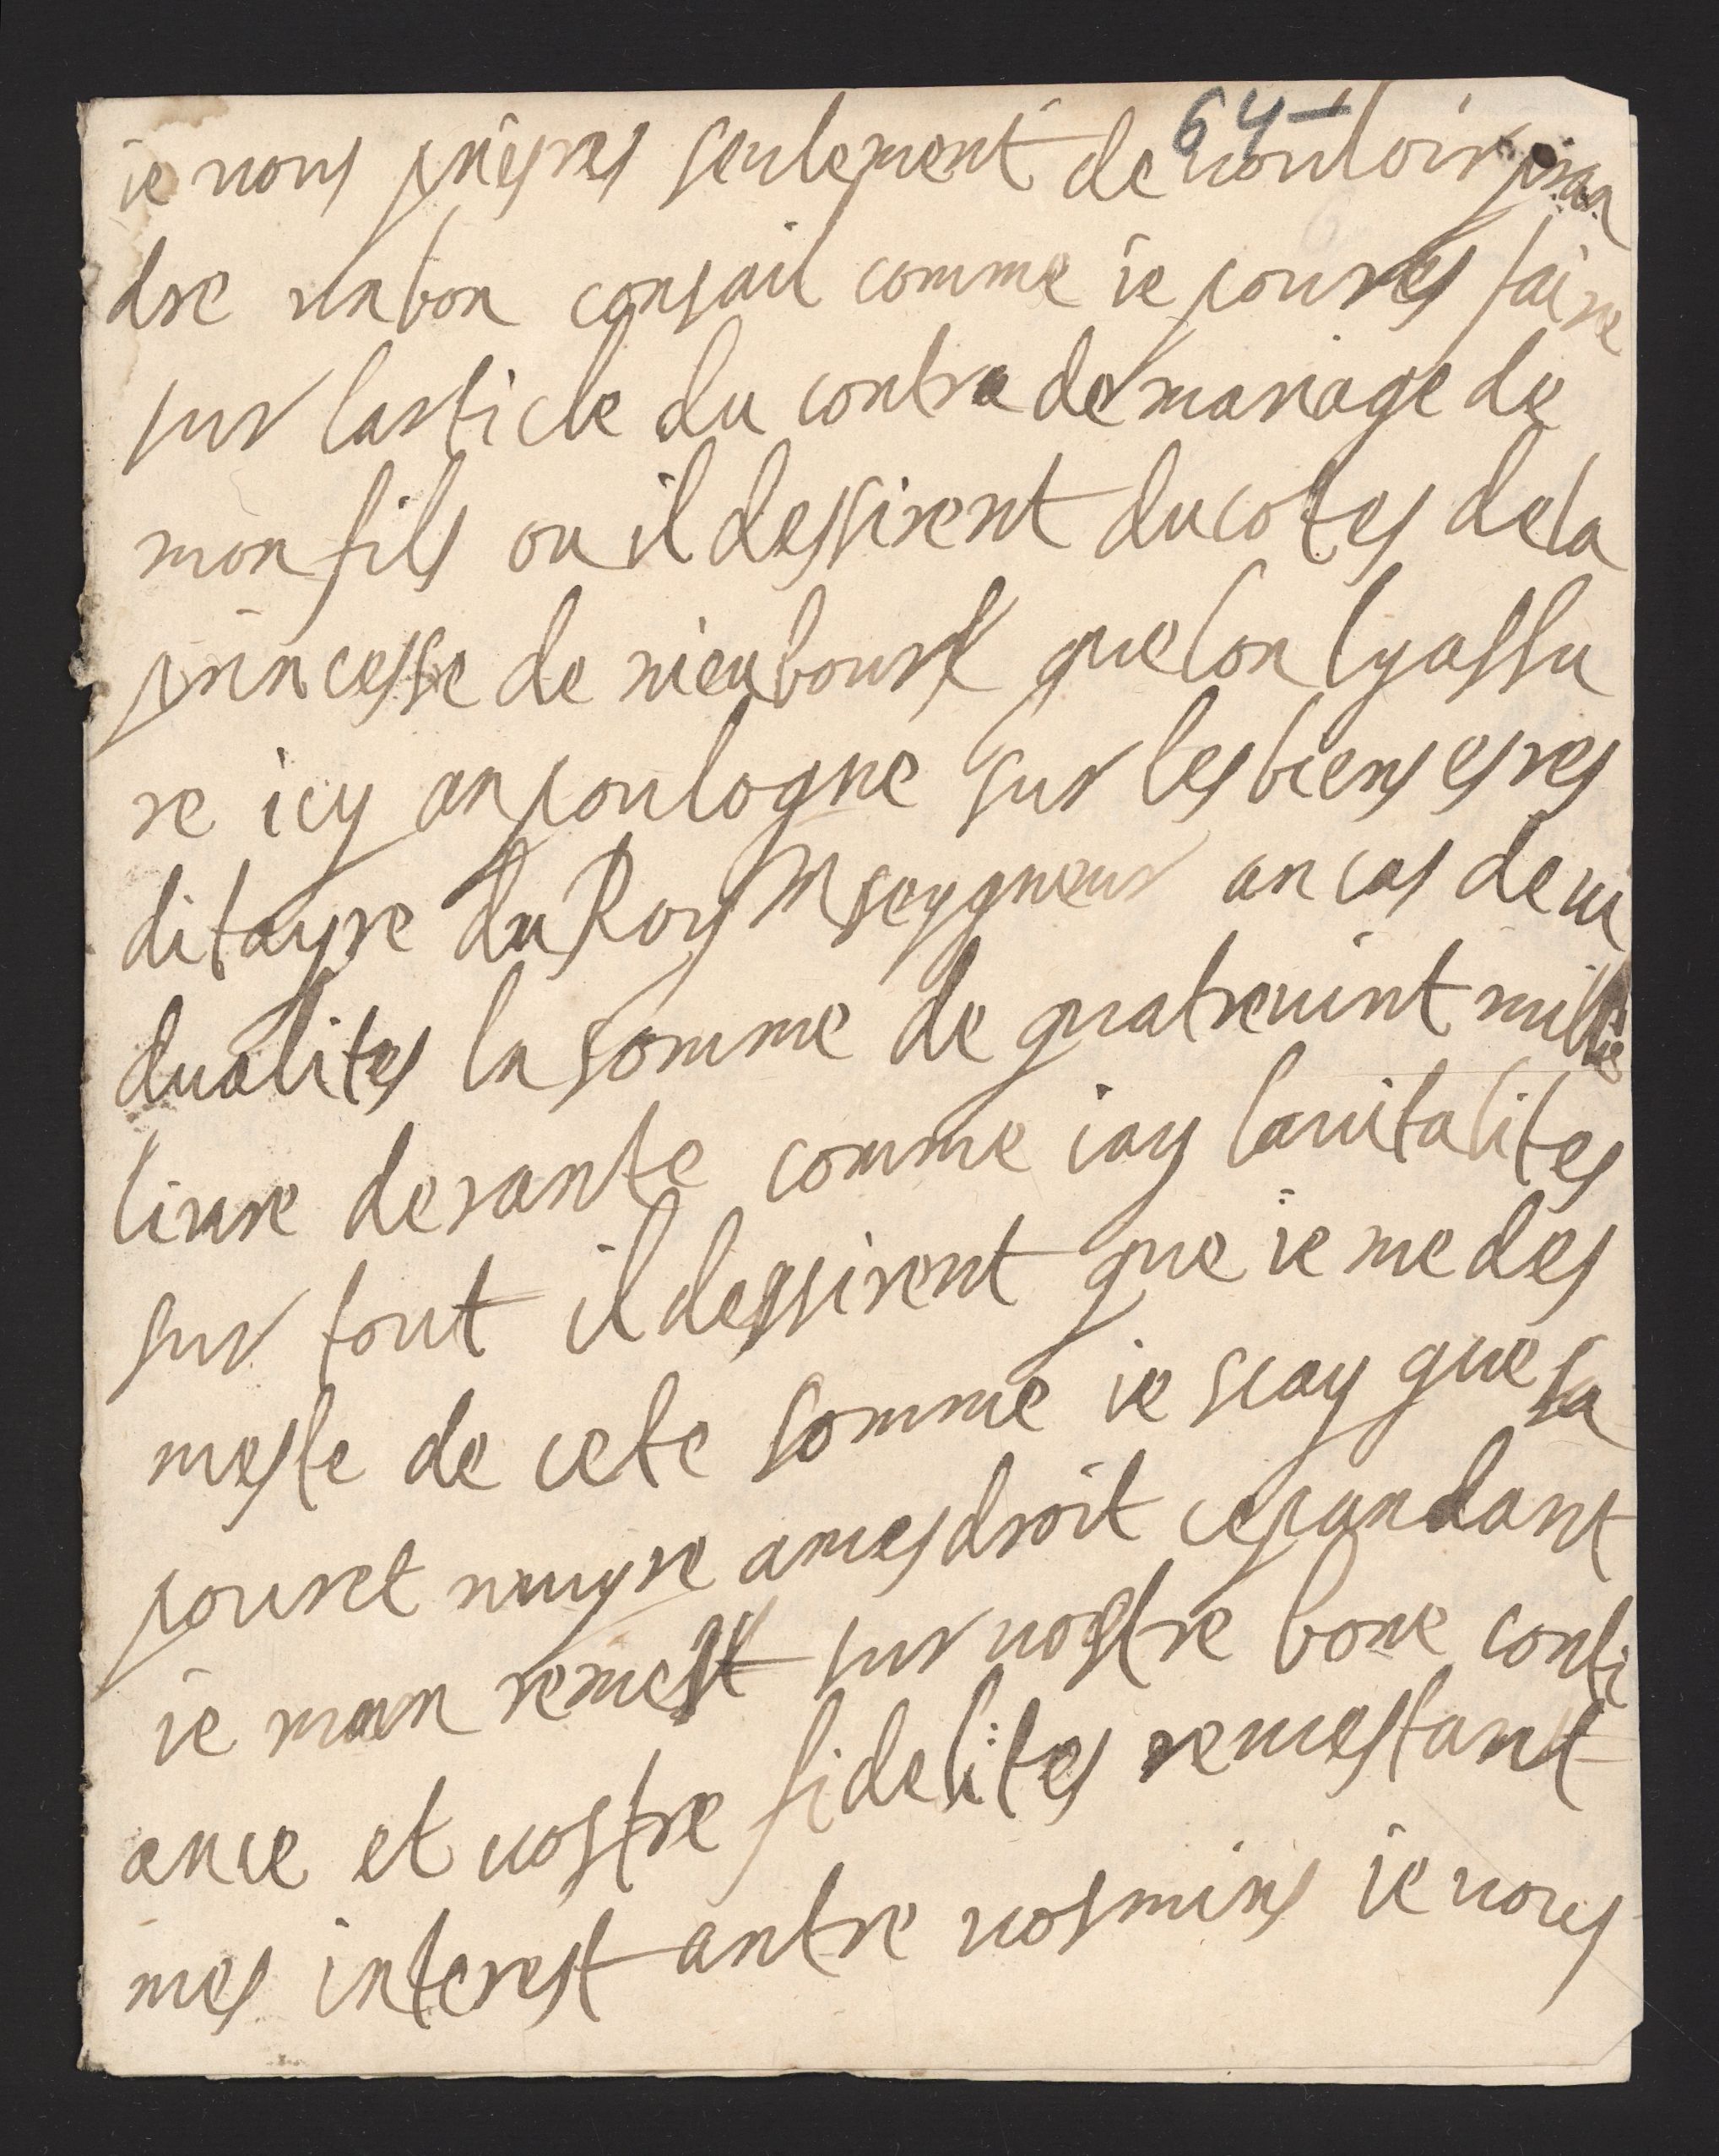 64
ie uous prieyres seulement de uouloir pran
dre un bon consail comme ie poures faire
sur larticle du contra de mariage de
mon fils ou il dessirent du cotes de la
princesse de nieubourk que lon ly assu
re icy an poulogne sur les biens esres
ditayre du Roy M seygneur an cas de ui
dualites la somme de quatreuint mille
liure de rante comme iay la uitalites
sur tout il dessirent que ie me des
meste de cete somme ie scay que sa
pouret nuuyre a mes droit cepandant
ie man remest sur uostre bone confi
ance et uostre fidelites remestant
mes interest antre uos mins ie uous